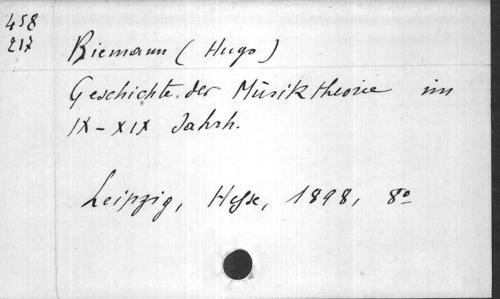 458
217
Riemann (Hugo)
Geschichte der Musiktheorie im
IX-XIX Jahrh.
Leipzig, Hesse, 1898, 8º